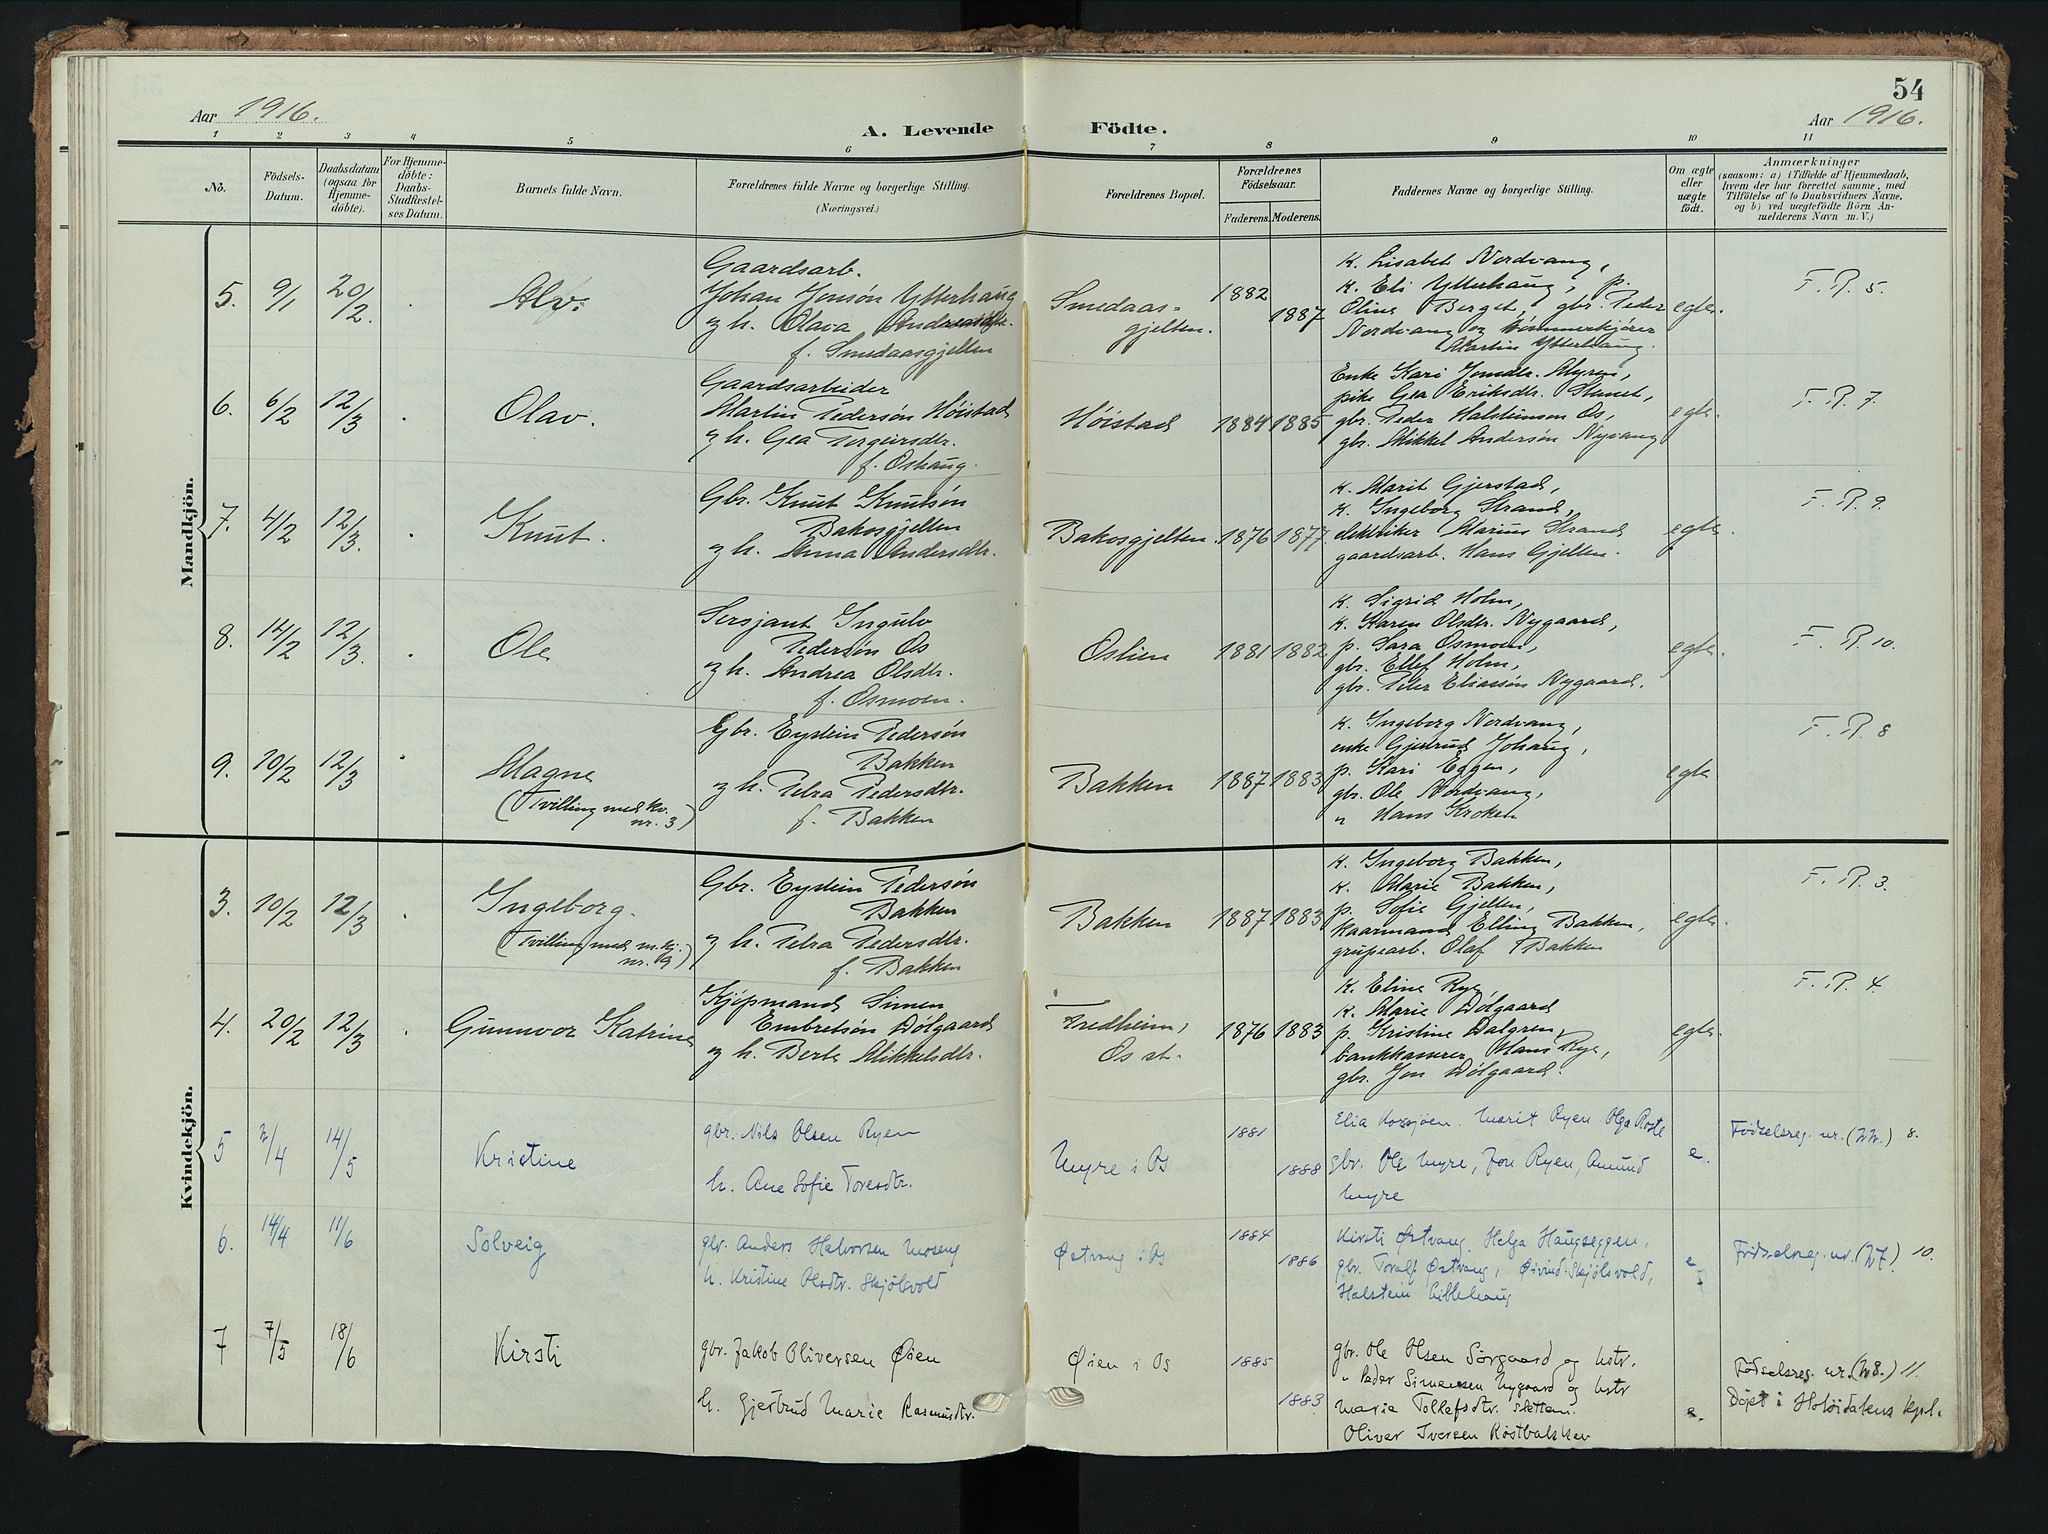 54
Aar 1916.
A. Levende Födte.
Aar 1916.
1 2 3 4 5 6 7 8 9 10 11
No.
Födsels-Datum.
Daabsdatum (ogsaa for Hjemmedöbte).
For Hjemmedöbte: Daabs-Stadfæstelses Datum.
Barnets fulde Navn.
Forældrenes fulde Navne og borgerlige Stilling. (Næringsvei.)
Forældrenes Bopæl.
Forældrenes Födselsaar.
Faderens. Moderens.
Faddernes Navne og borgerlige Stilling.
Om ægte eller uægte födt.
Anmærkninger
(saasom: a) i Tilfælde af Hjemmedaab, hvem der har forrettet samme, med Tilföielse af to Daabsvidners Navne, og b) ved uægtefödte Börn Anmelderens Navn m. V.)
Mandkjön.
5. 9/1 20/2. Alv.
Gaardsarb.
Johan Jonsøn Ytterhaug
og h. Olava Andreasdtr.
f. Smedaasgjelten
Smedaas-
gjelten.
1882 1887
K. Lisabet Nordvang,
K. Eli Ytterhaug, p.
Oline Berget, gbr. Peder
Nordvang og tømmerkjører
Martin Ytterhaug.
egte.
F. R. 5.
6. 6/2 12/3 Olav.
Gaardsarbeider
Martin Pedersøn Høistad
og h. Gea Torgeirsdtr.
f. Oshaug.
Høistad 1884 1885
Enke Kari Jonsdtr. Myren,
pike Gea Eriksdtr. Stimet,
gbr. Peder Halsteinsen Os,
gbr. Mikkel Andersøn Nyvang
egte.
F. R. 7.
7. 4/2 12/3. Knut.
Gbr. Knut Knutsøn
Bakosgjelten
og h. Anna Andersdtr.
Bakosgjelten. 1876 1877
K. Marit Gjerstad,
K. Ingeborg Strand,
elektriker Marius Strand
gaardsarb. Hans Gjelten.
egte.
F. R. 9.
8. 14/2 12/3. Ole
Sersjant Ingulv
Pedersøn Os
og h. Andrea Olsdtr.
f. Osmoen.
Oslien 1881 1882
K. Sigrid Holm,
K. Karen Olsdtr. Nygaard,
p. Sara Osmoen,
gbr. Ellef Holm,
gbr. Peter Eliassøn Nygaard.
egte.
F. R. 10.
9. 10/2 12/3 Magne
(Tvilling med kv.
nr. 3)
Gbr. Eystein Pedersøn
Bakken
og h. Petra Pedersdtr.
f. Bakken
Bakken 1887 1883
K. Ingeborg Nordvang,
enke Gjertrud Johaug,
p. Kari Eggen,
gbr. Ole Nordvang,
" Hans Kroken
egte
F. R. 8
Kvindekjön.
3. 10/2 12/3 Ingeborg.
(Tvilling med m.kj.
nr. 9)
Gbr. Eystein Pedersøn
Bakken
og h. Petra Pedersdtr.
f. Bakken
Bakken 1887 1883
K. Ingeborg Bakken,
K. Marie Bakken,
p. Sofie Gjelten,
kaarmand Elling Bakken,
grupearb. Olaf Bakken
egte.
F. R. 3.
4. 20/2 12/3 Gunnvor Katrine
Kjøpmand Simen
Embretsøn Dølgaard
og h. Berte Mikkelsdtr.
Fredheim,
Os st.
1876 1883
K. Eline Rye,
K. Marie Dølgaard
p. Kristine Dalgren,
bankkasserer Hans Rye,
gbr. Jon Dølgaard.
egte.
F. R. 4.
5 2/4 14/5 Kristine
gbr. Nils Olsen Ryen
h. Ane Sofie Toresdtr.
Myre i Os
1881 1888
Elia Kossjøen. Marit Ryen Olga Røste
gbr. Ole Myre, Jon Ryen, Amund
Myre
e.
Fødselsreg. nr. 8.
6. 14/4 11/6 Solveig
gbr. Anders Halvorsen Moseng
h. Kristine Olsdtr. Skjølsvold
Østvang i Os
1884 1886
Kirsti Østvang Helga Haugseggen,
gbr. Toralf Østvang, Øivind Skjølsvold,
Halstein
e
Fødselsreg. nr. (27.) 10.
7 7/5 18/6 Kirsti
gbr. Jakob Oliversen Øien
h. Gjertrud Marie Rasmusdtr.
Øien i Os
1885 1883
gbr. Ole Olsen Sørgaard og hstr.
" Peder Simensen Nygaard og hstr
Maria Tollefsdtr. Sletten.
Oliver Iversen Røstbakken
e.
Fødselsreg. nr. (28.) 11.
Døpt i Holøidalens kpl.